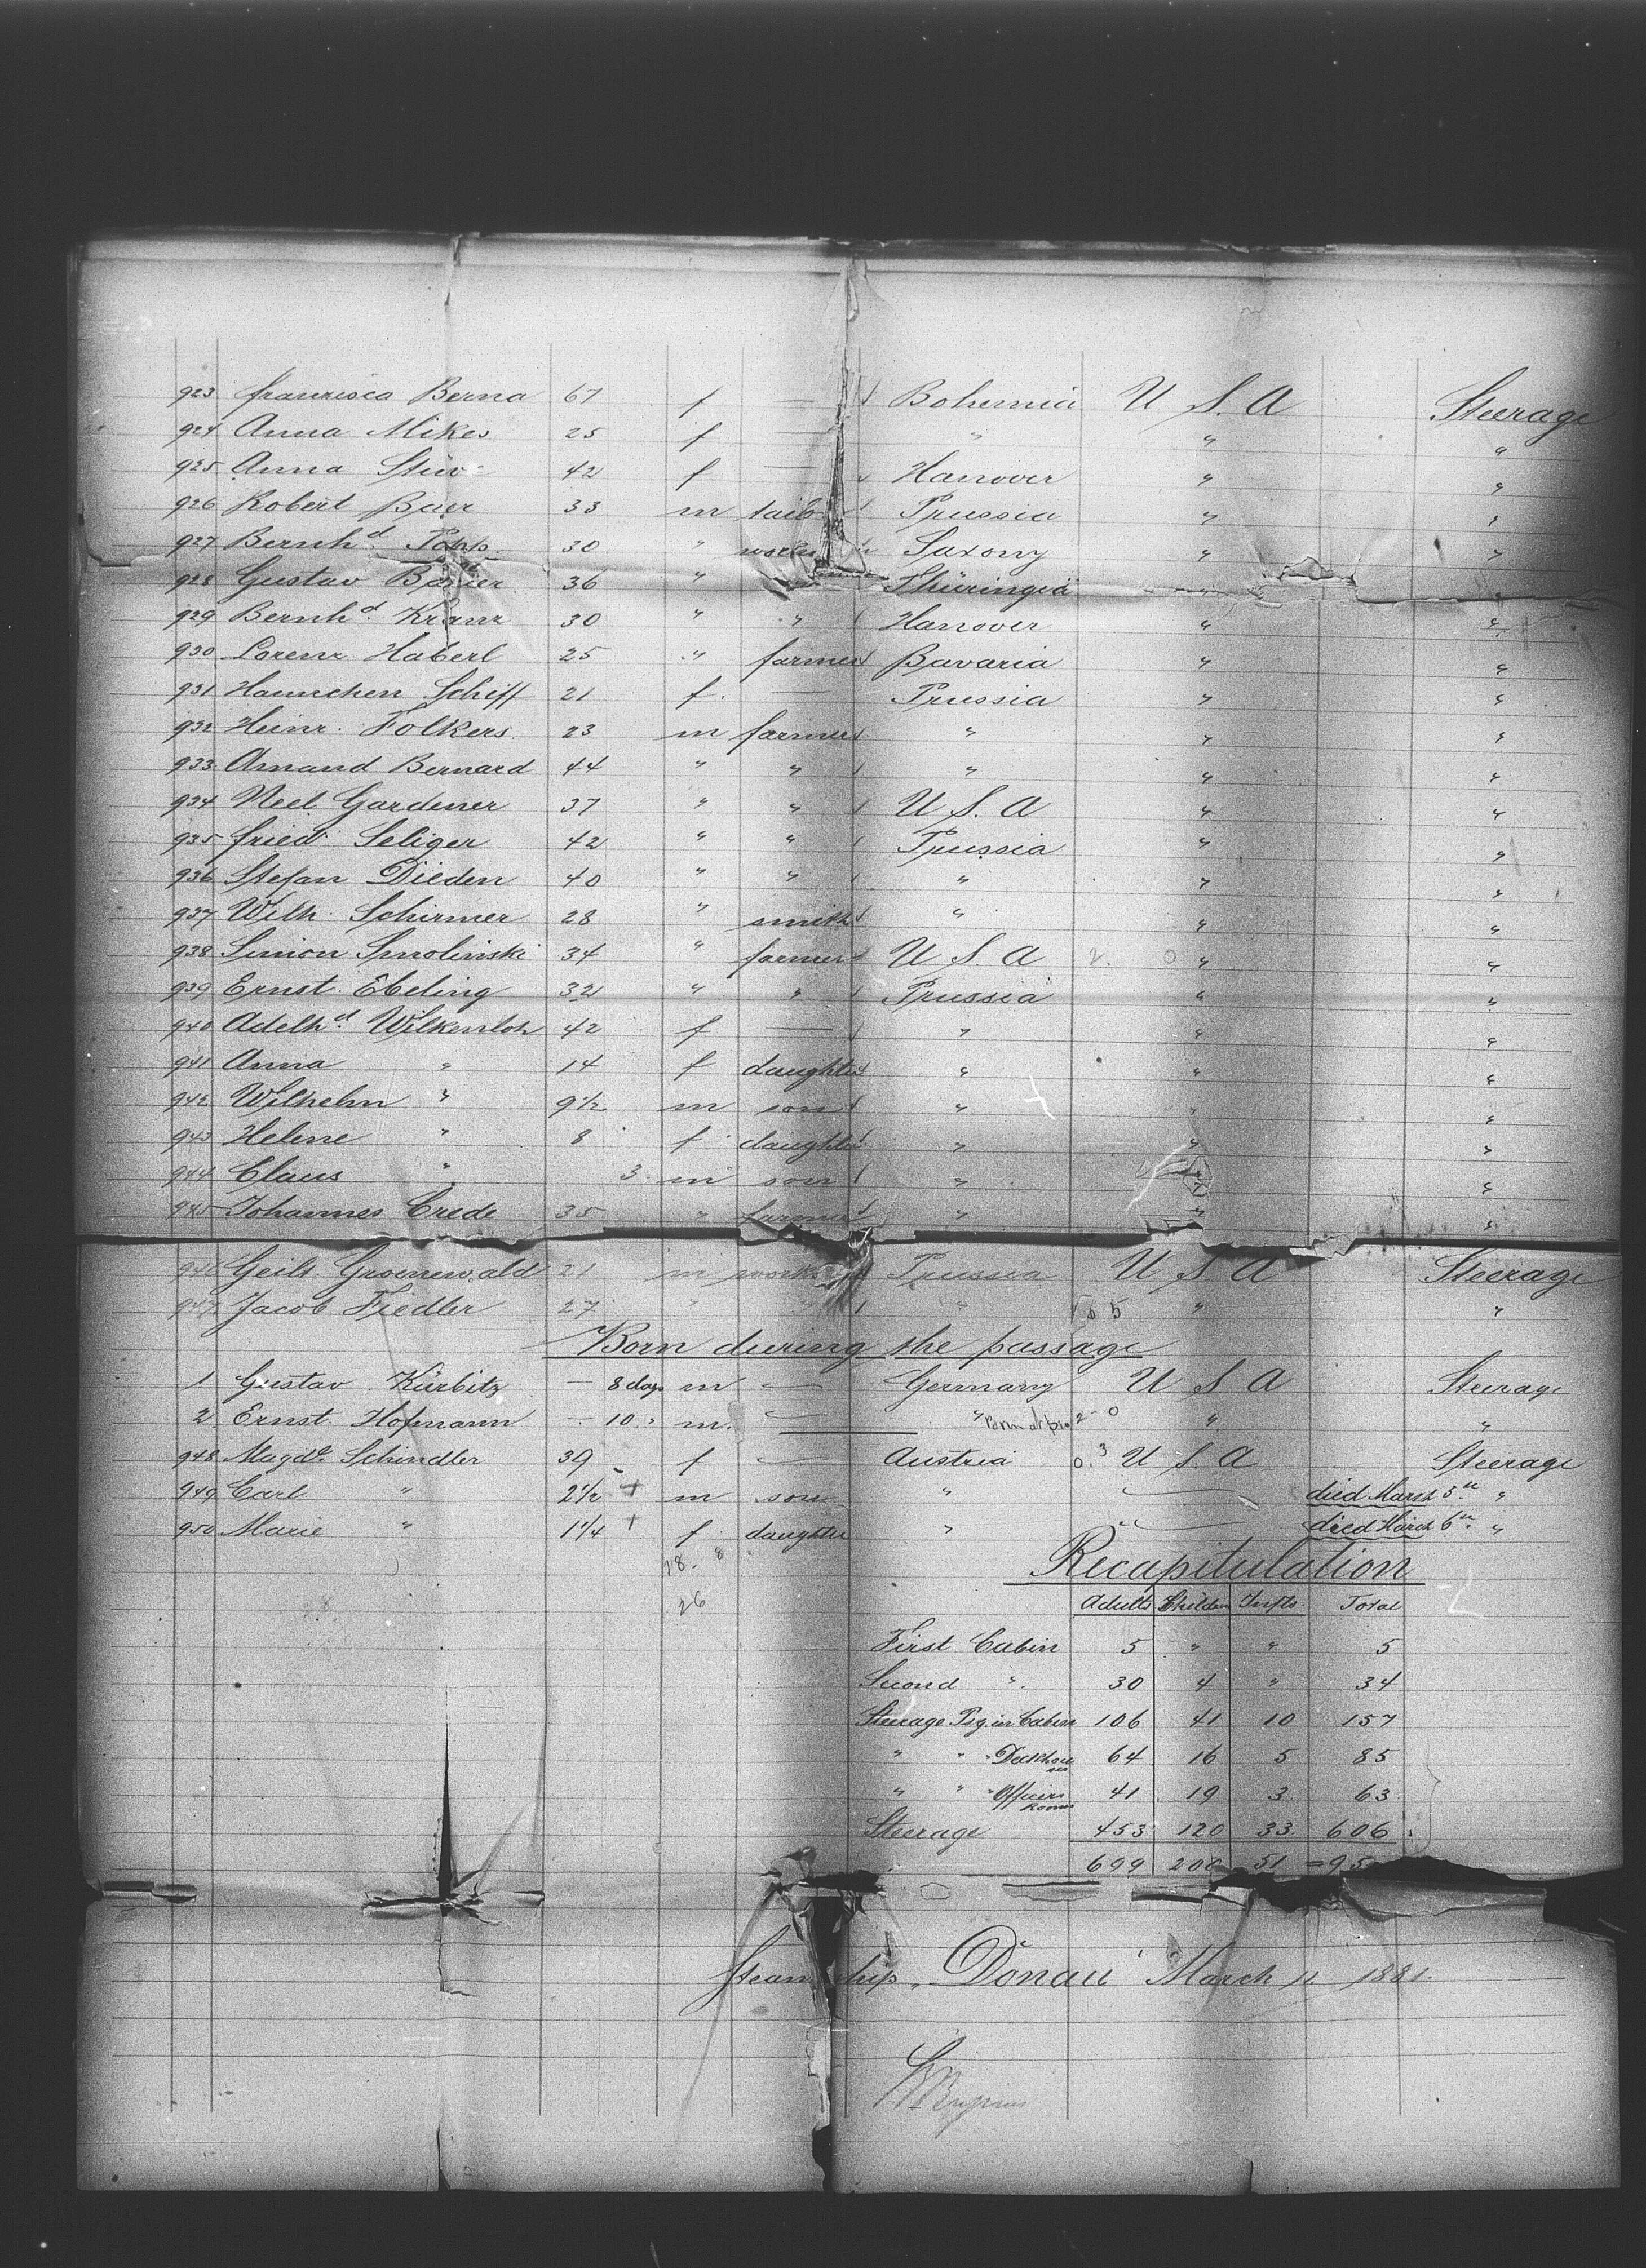 923 Francisca Berna 67 f — Bohemia U S. A Steerage
924 Anna Mikes 25 f — " " "
925 Anna 42 f — Hanover " "
926 Robert Baer 33 m Prussia " "
927 Bernhd. Popp 30 " Saxony " "
928 Gustav 36 " Thüringia " "
929 Bernhd. Kranz 30 " " Hanover " "
930 Lorenz Haberl 25 " farmer Bavaria " "
931 Hannchen Schiff 21 f. — Prussia " "
932 Heinr. Folkers 23 m farmer " " "
933 Amand Bernard 44 " " " " "
934 Neel Gardener 37 " " U S. A " "
935 Fried. Seliger 42 " " Prussia " "
936 Stefan Dieden 40 " " " " "
937 Wilh. Schirmer 28 " smith " " "
938 Simon Smolinski 34 " farmer U S. A " "
939 Ernst Ebeling 32 " " Prussia " "
940 Adelhd. Wilkenloh 42 f — " " "
941 Anna " 14 f daughter " " "
942 Wilhelm " 9 1/2 m son " " "
943 Helene " 8 f daughter " " "
944 Claus " 3 m son " " "
945 Johannes Crede 35 " farmer " " "
946 Geils Groenewald 21 m Prussia U S A Steerage
947 Jacob Fiedler 27 " " " " "
Born during the passage
1 Gustav Kürbitz — 8 days m — Germany U S A Steerage
2 Ernst Hofmann — 10 " m. — " " "
948 Magde. Schindler 39 f — Austria U S A Steerage
949 Carl " 2 1/2 + m son " died March 5th "
950 Marie " 1 1/4 + f daughter " died March 6th "
18. 8
26
Recapitulation
Adults Children Infts. Total
First Cabin 5 " " 5
Second " 30 4 " 34
Steerage Psg. in Cabin 106 41 10 157
" " " Deckhouses 64 16 5 85
" " " Officers Rooms 41 19 3 63
Steerage 453 120 33 606
699 200 51 = 95
Steamship "Donau" March 11 1881.